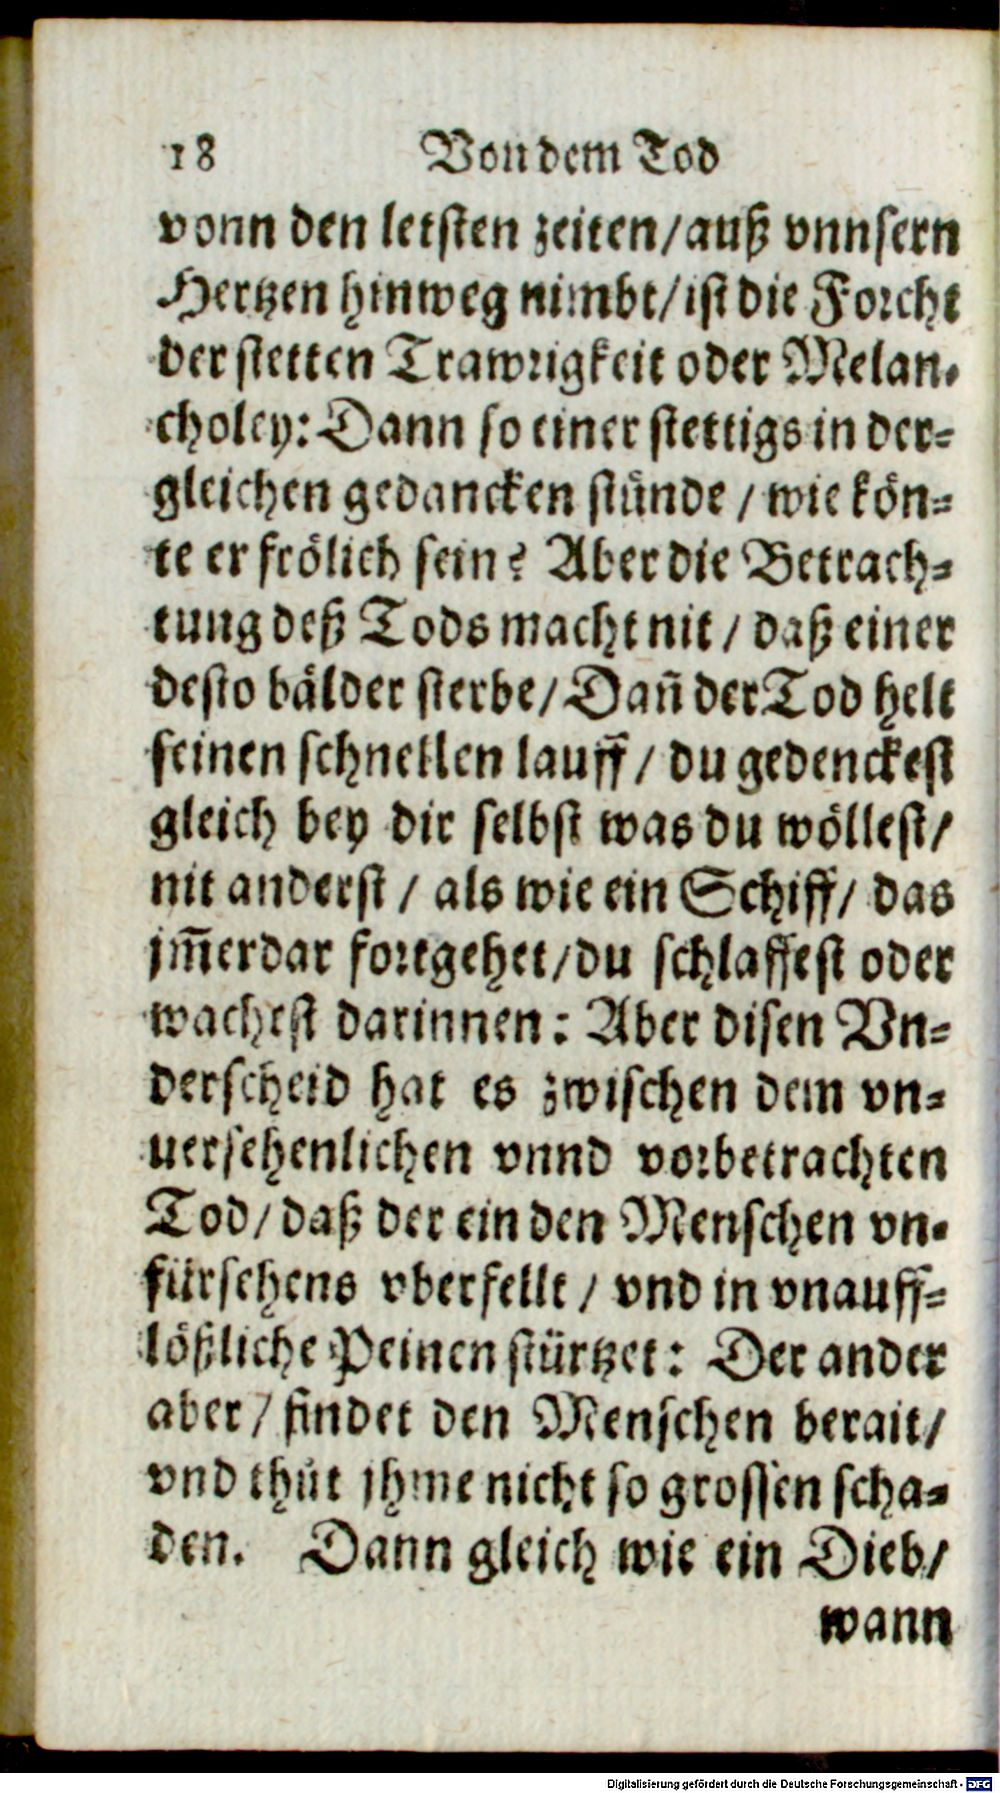 18 Von dem Tod
vonn den letsten zeiten/auß vnnsern
Hertzen hinweg nimbt/ist die Forcht
der stetten Trawrigkeit oder Melan-
choley: Dann so einer stettigs in der-
gleichen gedancken stünde / wie kön-
te er frölich sein? Aber die Betrach-
tung deß Tods macht nit / daß einer
desto bälder sterbe/ Dañ der Tod helt
seinen schnellen lauff / du gedenckest
gleich bey dir selbst was du wöllest/
nit anderst / als wie ein Schiff/ das
jm̃erdar fortgehet/du schlaffest oder
wachest darinnen: Aber disen Vn-
derscheid hat es zwischen dem vn-
uersehenlichen vnnd vorbetrachten
Tod/ daß der ein den Menschen vn-
fürsehens vberfellt / vnd in vnauff-
lößliche Peinen stürtzet: Der ander
aber / findet den Menschen berait/
vnd thůt jhme nicht so grossen scha-
den. Dann gleich wie ein Dieb/
wann
Digitalisierung gefördert durch die Deutsche Forschungsgemeinschaft - DFG